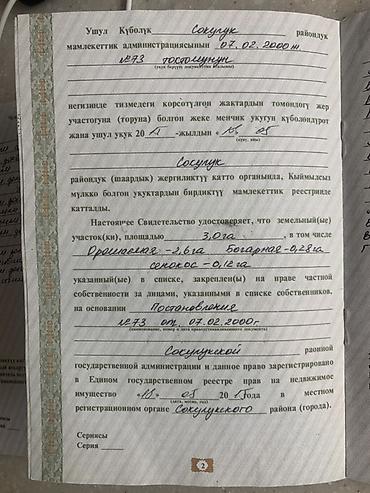 Ушул Күбөлүк Сокулук райондук
мамлекеттик администрациясынын 07.02.2000ж
№73 токтомунун
негизинде тизмедеги көрсөтүлгөн жактардын төмөндөгү жер
участогуна (торуна) болгон жеке менчик укугун күбөлөндүрөт
жана ушул укук 20 -жылдын « 05
Сокулук
райондук (шаардык) жергиликтүү катто органында, Кыймылсыз
мүлккө болгон укуктардын бирдиктүү мамлекеттик реестринде
катталды.
Настоящее Свидетельство удостоверяет, что земельный(ые)
участок(ки), площадью 3,0га , в том числе
Орошаемая -2,6га Богарная -0,28га
сенокос -0,12га
указанный(ые) в списке, закреплен(ы) на праве частной
собственности за лицами, указанными в списке собственников.
на основании Постановления
№73 от 07.02.2000г
(наименование, номер и дата правоустанавливающего документа)
Сокулукской районной
государственной администрации и данное право зарегистрировано
в Едином государственном реестре прав на недвижимое
имущество « » 05 20 года в местном
(дата, месяц, год)
регистрационном органе Сокулукского района (города).
Сериясы
Серия
2